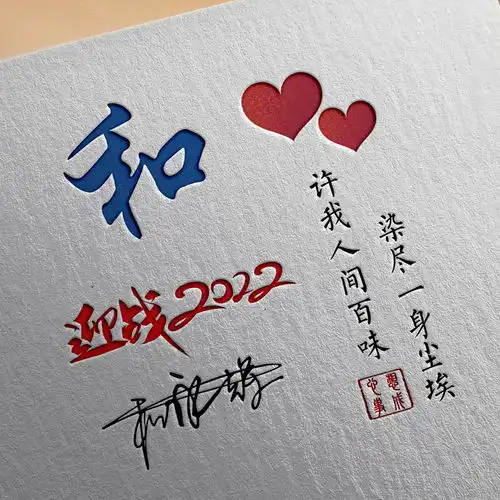 和
迎战2022
许我人间百味
染尽一身尘埃
心想
事成